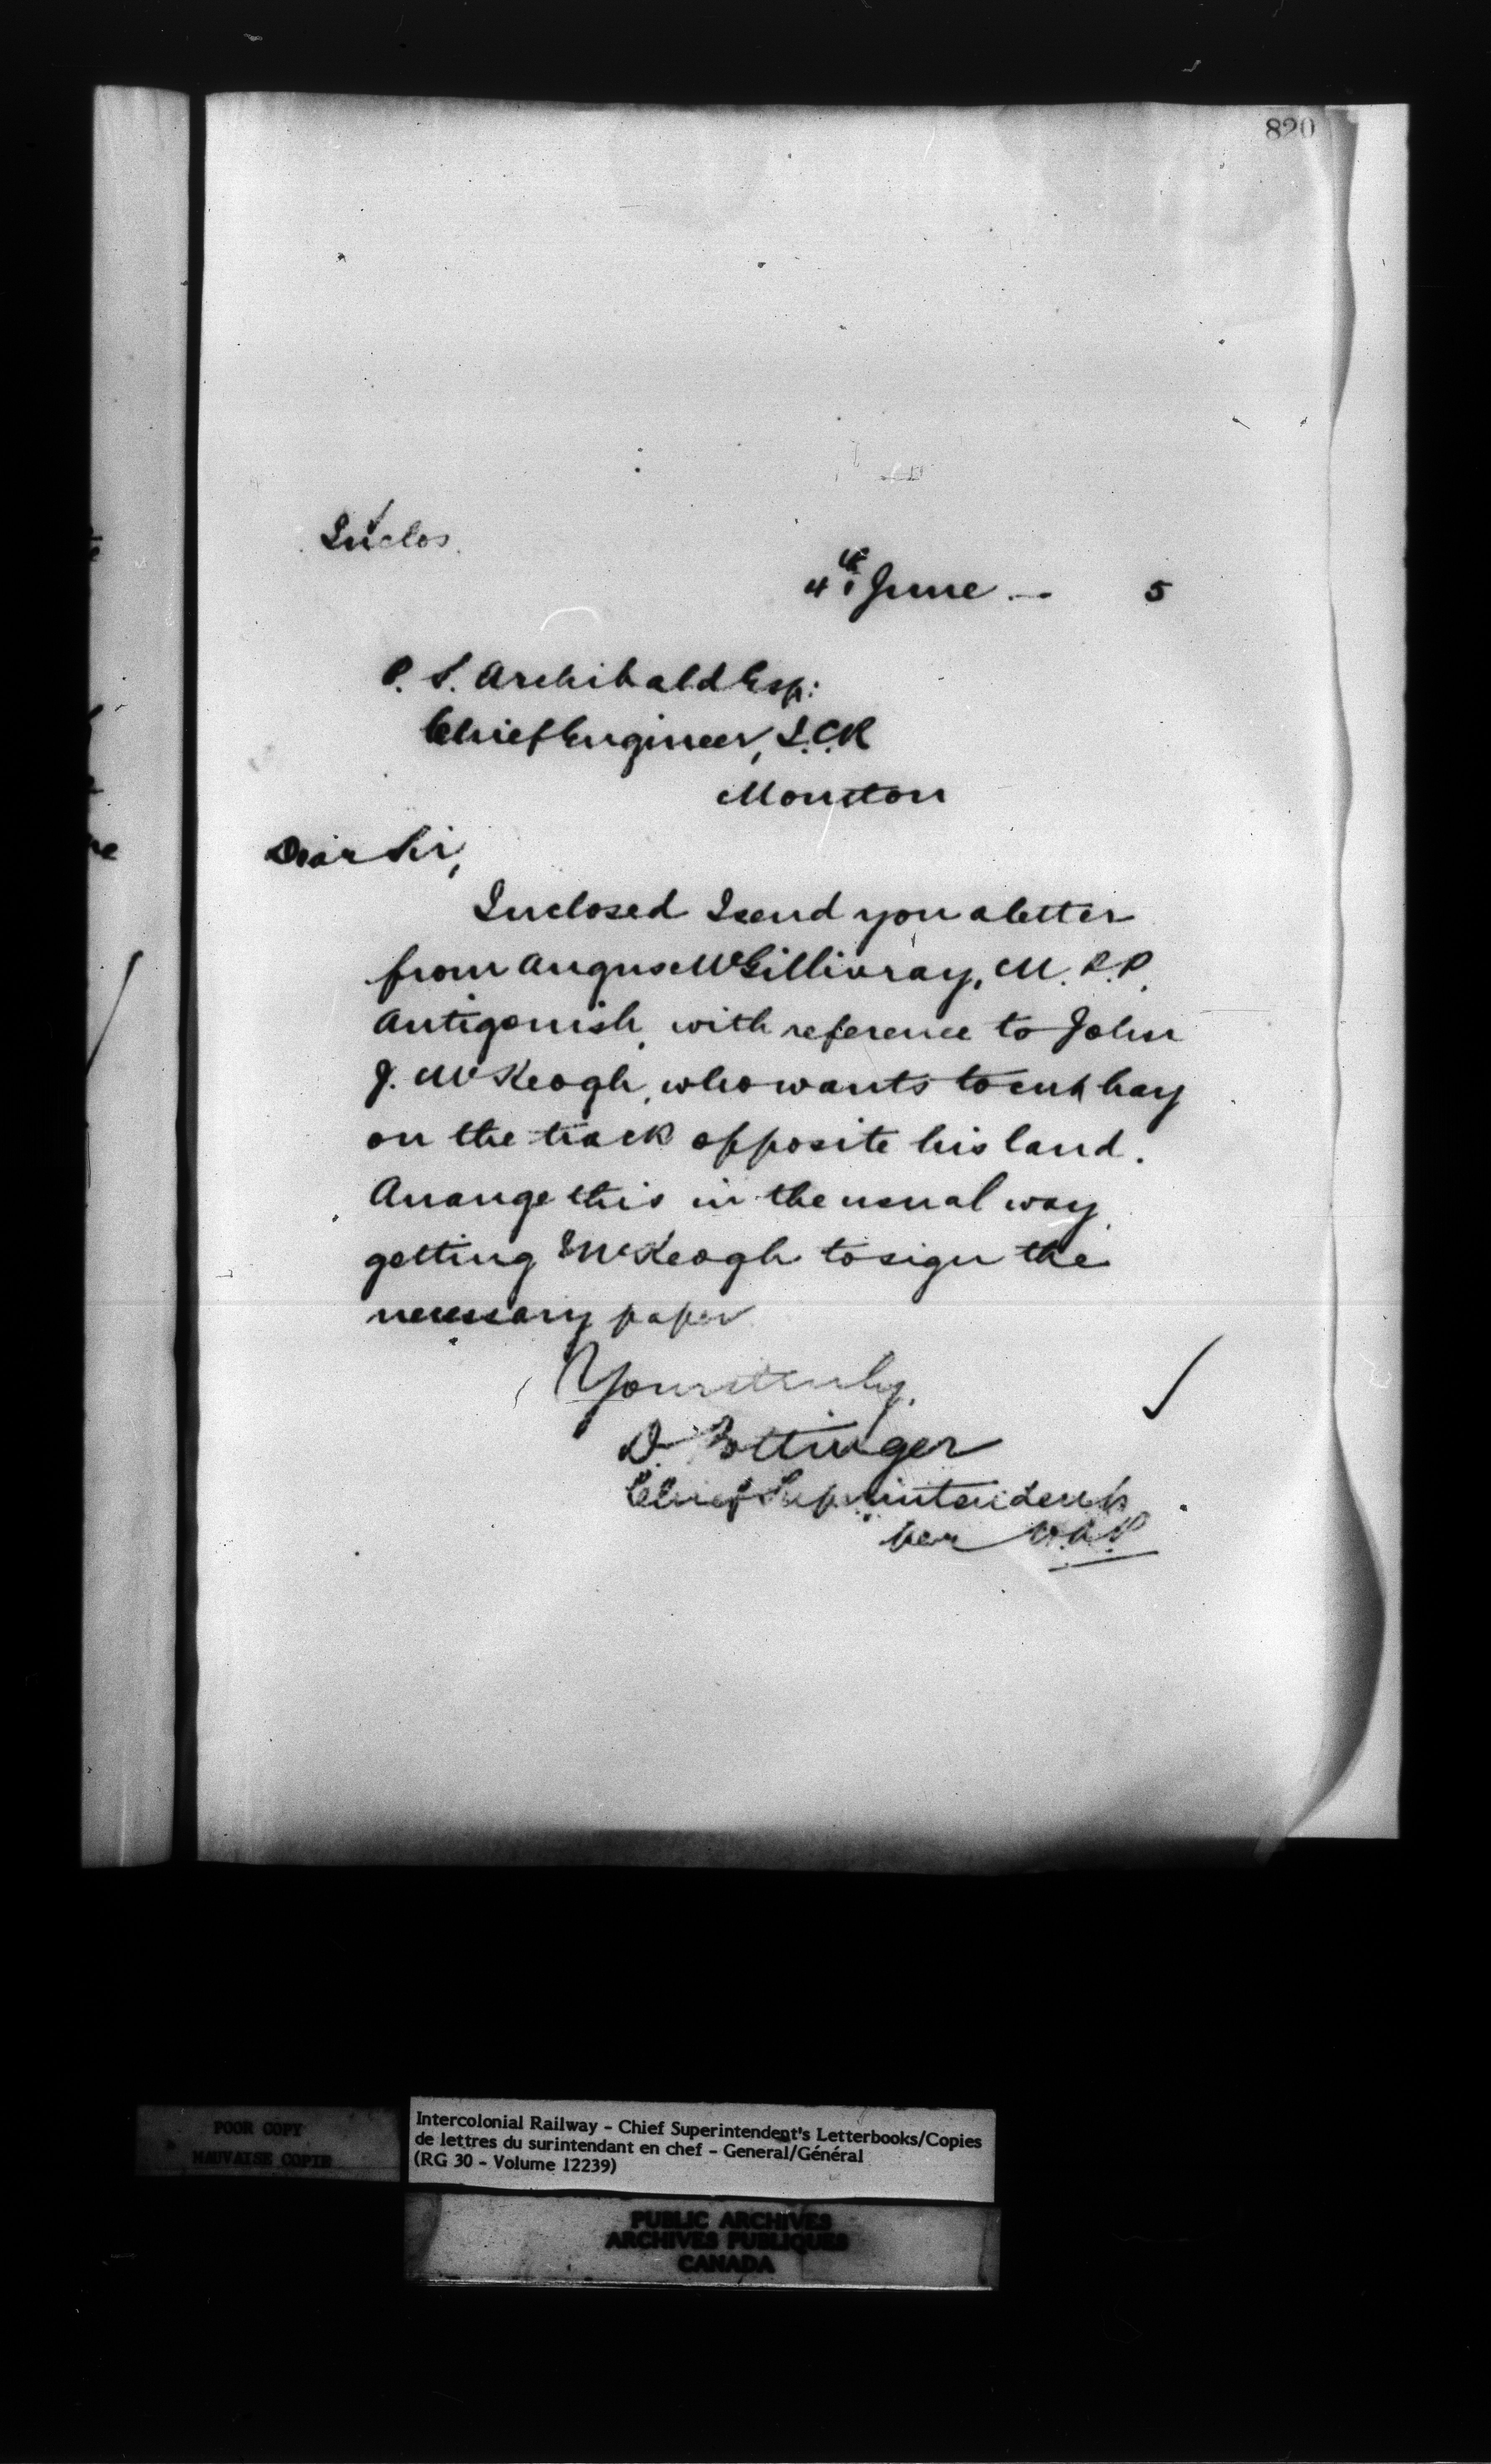 820
Inclos.
4th June — 5
P. S. Archibald Esq:
Chief Engineer, I.C.R
Moncton
Dear Sir,
Inclosed I send you a letter
from Angus McGillivray, M.P.P.
Antigonish, with reference to John
J. McKeogh, who wants to cut hay
on the track opposite his land.
Arrange this in the usual way,
getting McKeogh to sign the
necessary paper
Yours truly,
D. Pottinger
Chief Superintendent
per
POOR COPY
MAUVAISE COPIE
Intercolonial Railway - Chief Superintendent's Letterbooks/Copies
de lettres du surintendant en chef - General/Général
(RG 30 - Volume 12239)
PUBLIC ARCHIVES
ARCHIVES PUBLIQUES
CANADA